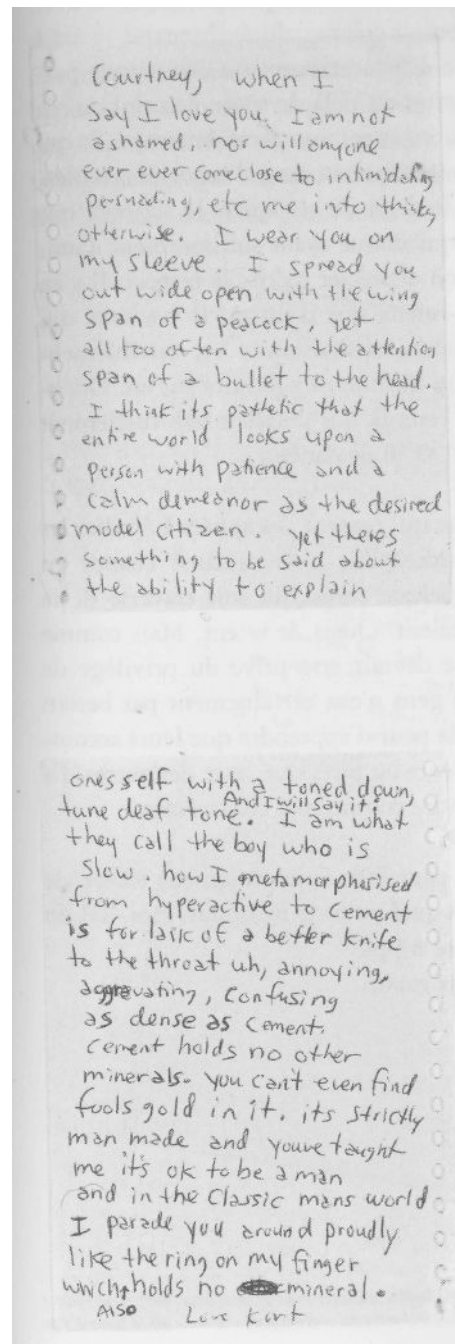 Courtney, when I
say I love you I am not
ashamed, nor will anyone
ever ever come close to intimidating
persuading, etc me into thinking
otherwise. I wear you on
my sleeve. I spread you
out wide open with the wing
span of a peacock, yet
all too often with the attention
span of a bullet to the head.
I think its pathetic that the
entire world looks upon a
person with patience and a
calm demeanor as the desired
model citizen. yet theres
something to be said about
the ability to explain
ones self with a toned down,
tune deaf tone. And I will say it: I am what
they call the boy who is
slow. how I metamorphisised
from hyperactive to cement
is for lack of a better knife
to the throat uh, annoying,
aggrevating, confusing
as dense as cement.
cement holds no other
minerals. you can't even find
fools gold in it. its strictly
man made and youve taught
me it's ok to be a man
and in the Classic mans world
I parade you around proudly
like the ring on my finger
which Also holds no mineral.
Love Kurt